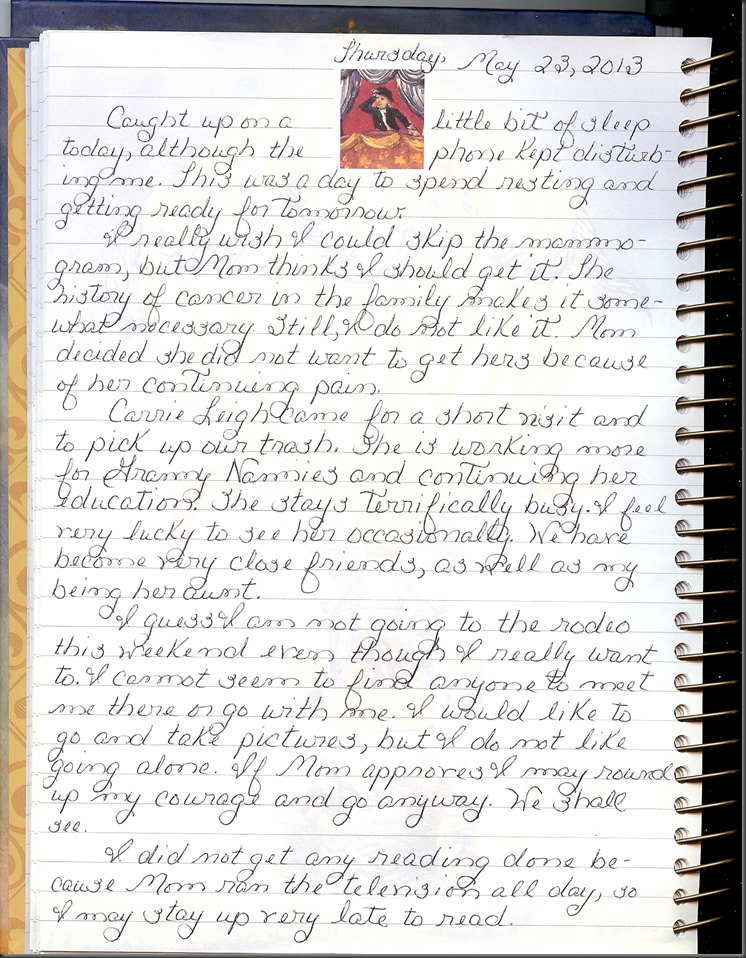 Thursday, May 23, 2013
Caught up on a little bit of sleep
today, although the phone kept disturb-
ing me. This was a day to spend resting and
getting ready for tomorrow.
I really wish I could skip the mammo-
gram, but Mom thinks I should get it. The
history of cancer in the family makes it some-
what necessary. Still, I do not like it. Mom
decided she did not want to get hers because
of her continuing pain.
Carrie Leigh came for a short visit and
to pick up our trash. She is working more
for Granny Nannies and continuing her
education. She stays terrifically busy. I feel
very lucky to see her occasionally. We have
become very close friends, as well as my
being her aunt.
I guess I am not going to the rodeo
this weekend even though I really want
to. I cannot seem to find anyone to meet
me there or go with me. I would like to
go and take pictures, but I do not like
going alone. If Mom approves I may round
up my courage and go anyway. We shall
see.
I did not get any reading done be-
cause Mom ran the television all day, so
I may stay up very late to read.